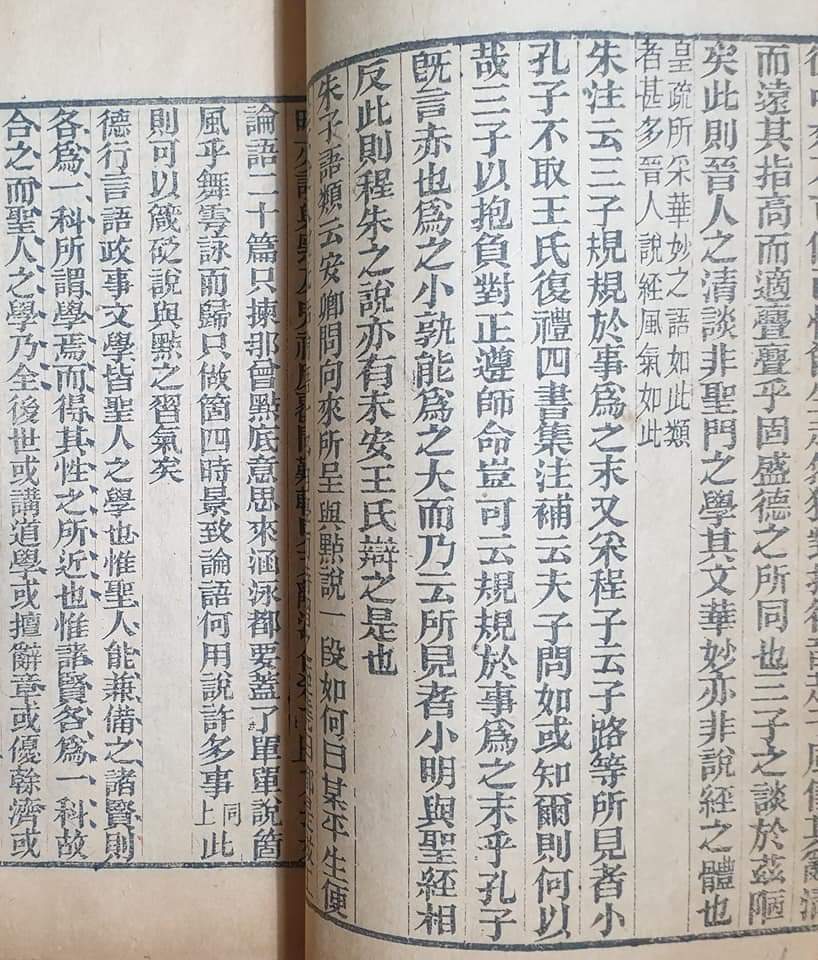 而遠其指高而適亹亹乎固盛德之所同也三子之談於茲陋
矣此則晉人之清談非聖門之學其文華妙亦非說經之體也
皇疏所采華妙之語如此類
者甚多晉人說經風氣如此
朱注云三子規規於事爲之末又采程子云子路等所見者小
孔子不取王氏復禮四書集注補云夫子問如或知爾則何以
哉三子以抱負對正遵師命豈可云規規於事爲之末乎孔子
旣言赤也爲之小孰能爲之大而乃云所見者小明與聖經相
反此則程朱之說亦有未安王氏辯之是也
朱子語類云安卿問向來所呈與點說一段如何曰某平生便
論語二十篇只揀那曾點底意思來涵泳都要蓋了單單說箇
風乎舞雩詠而歸只做箇四時景致論語何用說許多事同上此
則可以箴砭說與點之習氣矣
德行言語政事文學皆聖人之學也惟聖人能兼備之諸賢則
各爲一科所謂學焉而得其性之所近也惟諸賢各爲一科故
合之而聖人之學乃全後世或講道學或擅辭章或優幹濟或